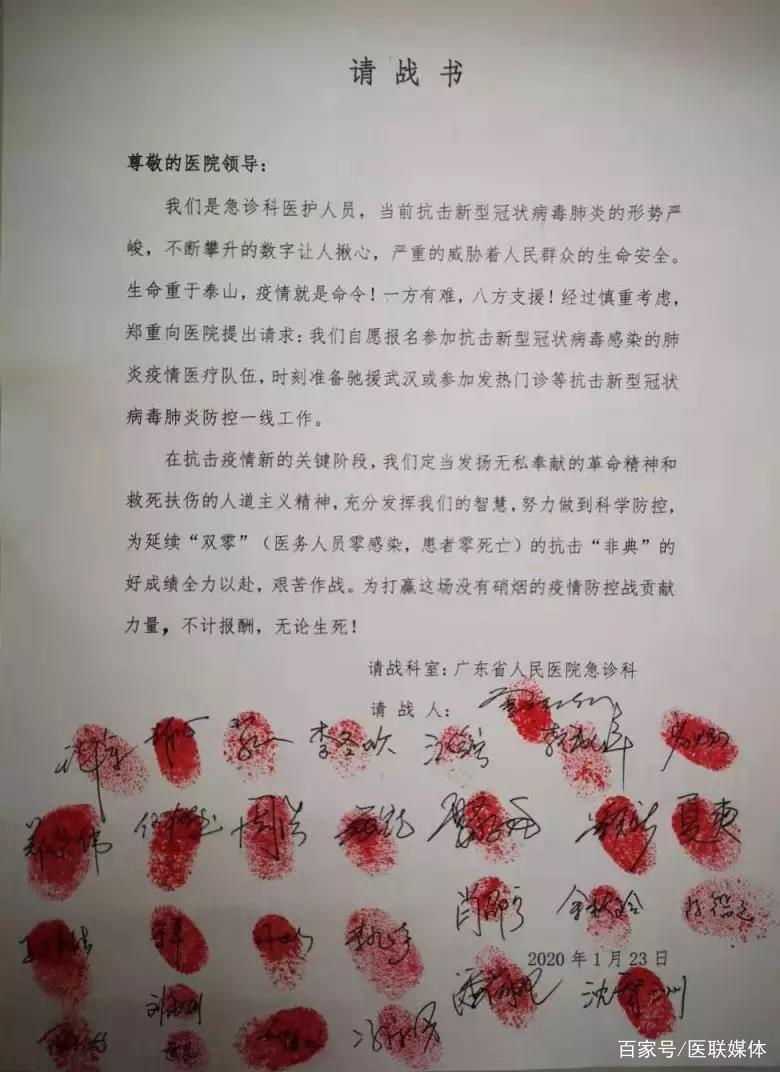 请战书
尊敬的医院领导：
我们是急诊科医护人员，当前抗击新型冠状病毒肺炎的形势严
峻，不断攀升的数字让人揪心，严重的威胁着人民群众的生命安全。
生命重于泰山，疫情就是命令！一方有难，八方支援！经过慎重考虑，
郑重向医院提出请求：我们自愿报名参加抗击新型冠状病毒感染的肺
炎疫情医疗队伍，时刻准备驰援武汉或参加发热门诊等抗击新型冠状
病毒肺炎防控一线工作。
在抗击疫情新的关键阶段，我们定当发扬无私奉献的革命精神和
救死扶伤的人道主义精神，充分发挥我们的智慧，努力做到科学防控，
为延续“双零”（医务人员零感染，患者零死亡）的抗击“非典”的
好成绩全力以赴，艰苦作战。为打赢这场没有硝烟的疫情防控战贡献
力量，不计报酬，无论生死！
请战科室：广东省人民医院急诊科
请战人：
李冬吹
夏爽
2020年1月23日
百家号/医联媒体